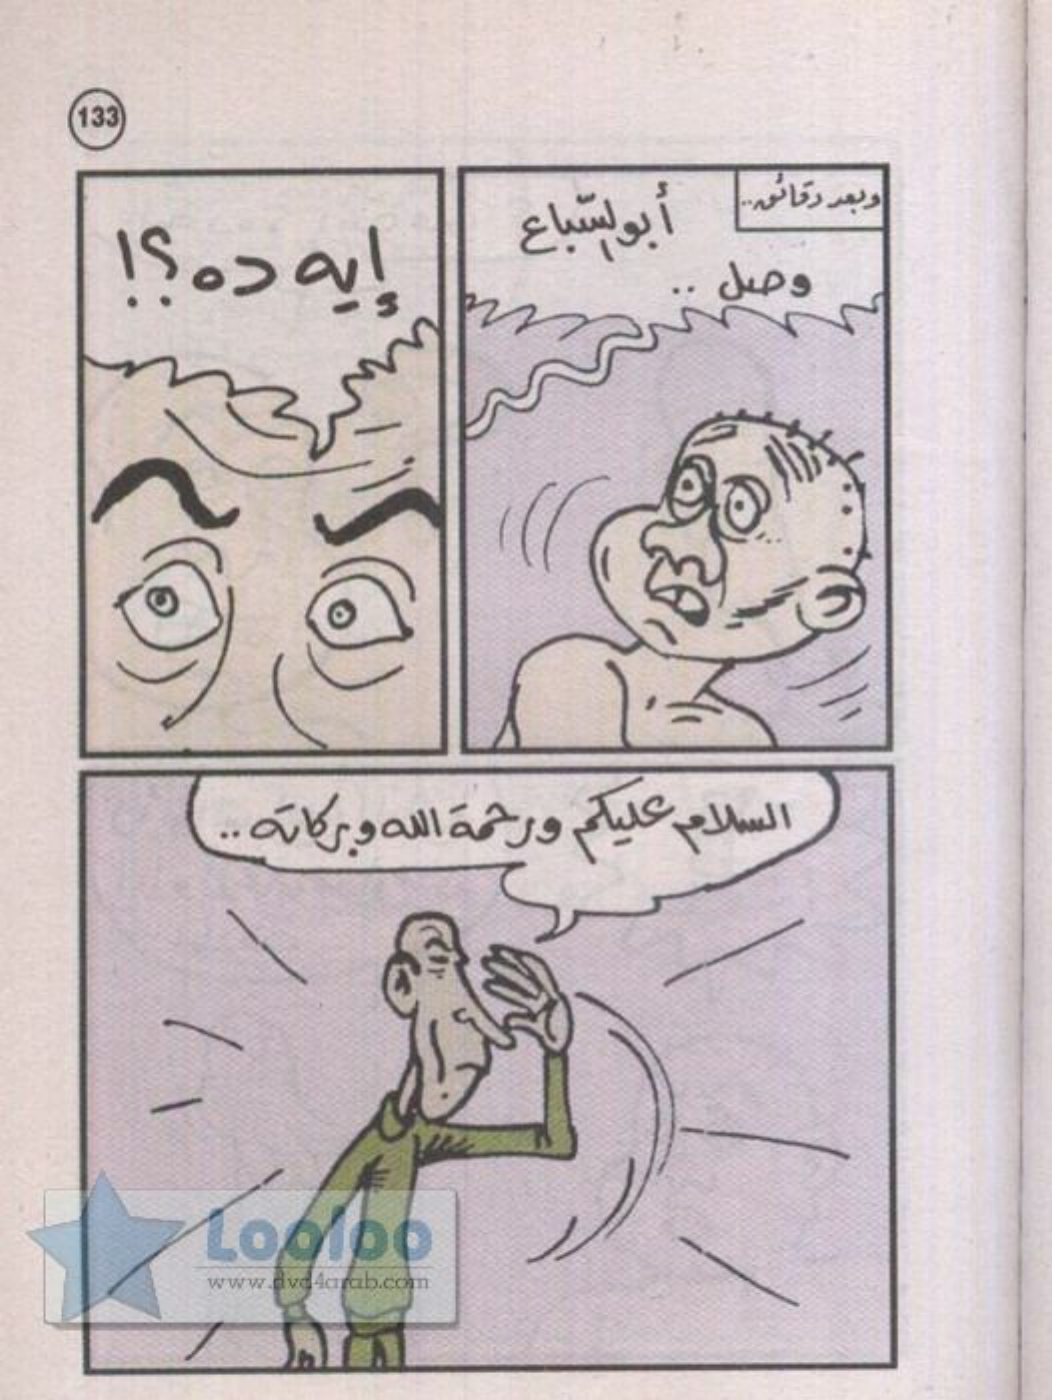 133
وبعد دقائق..
أبو السّباع
وصل ..
إيه ده؟!
السلام عليكم ورحمة الله وبركاته..
Looloo
www.dvd4arab.com